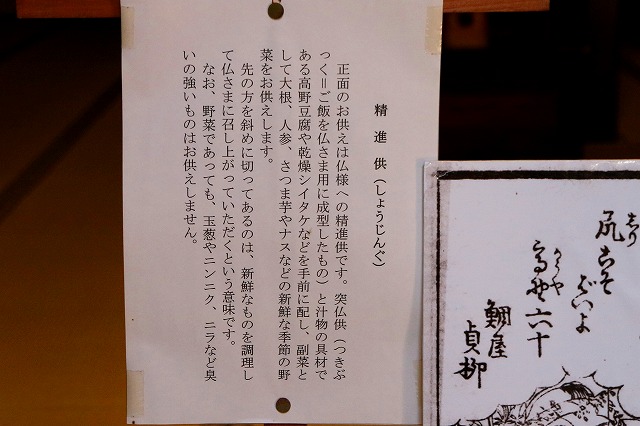 精進供（しょうじんぐ）
正面のお供えは仏様への精進供です。突仏供（つきぶ
っく＝ご飯を仏さま用に成型したもの）と汁物の具材で
ある高野豆腐や乾燥シイタケなどを手前に配し、副菜と
して大根、人参、さつま芋やナスなどの新鮮な季節の野
菜をお供えします。
先の方を斜めに切ってあるのは、新鮮なものを調理し
て仏さまに召し上がっていただくという意味です。
なお、野菜であっても、玉葱やニンニク、ニラなど臭
いの強いものはお供えしません。
しり
尻こそ
ばいよ
かうや
高野六十
鯛屋
貞柳